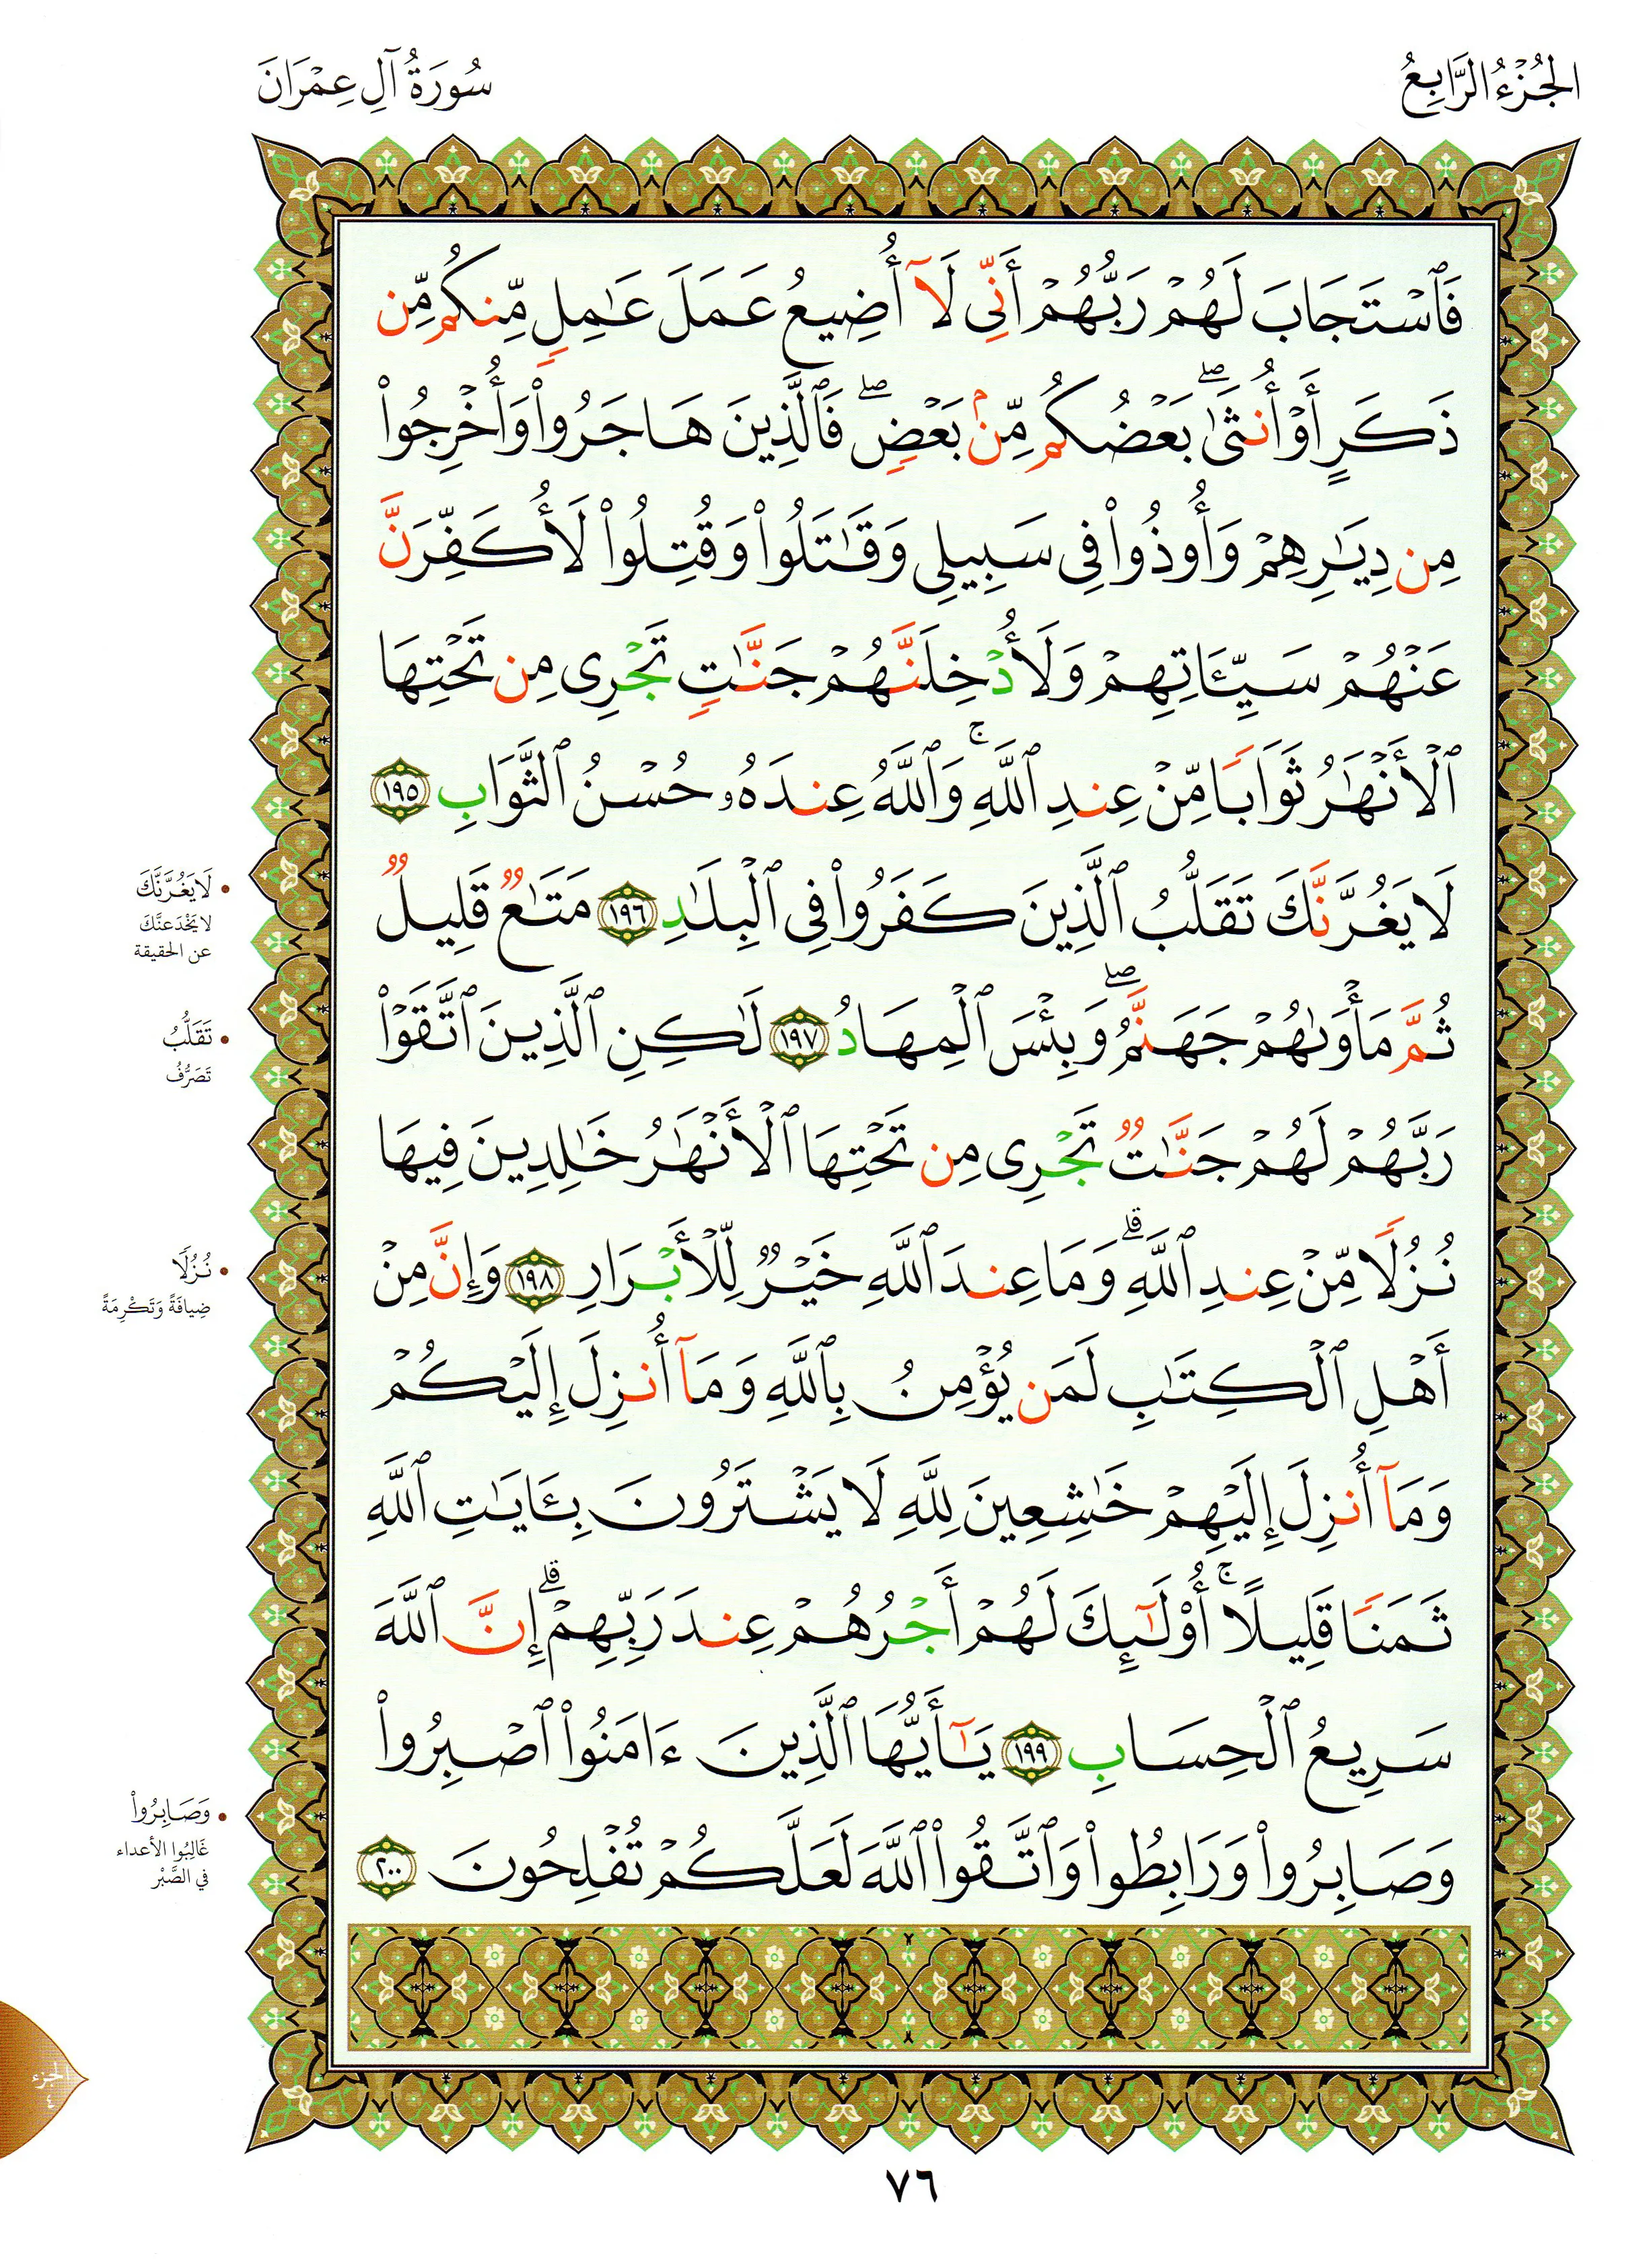 الجُزْءُ الرَّابِعُ
سُورَةُ آلِ عِمْرَانَ
فَٱسْتَجَابَ لَهُمْ رَبُّهُمْ أَنِّى لَآ أُضِيعُ عَمَلَ عَٰمِلٍ مِّنكُم مِّن
ذَكَرٍ أَوْ أُنثَىٰ ۖ بَعْضُكُم مِّنۢ بَعْضٍ ۖ فَٱلَّذِينَ هَاجَرُوا۟ وَأُخْرِجُوا۟
مِن دِيَٰرِهِمْ وَأُوذُوا۟ فِى سَبِيلِى وَقَٰتَلُوا۟ وَقُتِلُوا۟ لَأُكَفِّرَنَّ
عَنْهُمْ سَيِّـَٔاتِهِمْ وَلَأُدْخِلَنَّهُمْ جَنَّٰتٍ تَجْرِى مِن تَحْتِهَا
ٱلْأَنْهَٰرُ ثَوَابًا مِّنْ عِندِ ٱللَّهِ ۚ وَٱللَّهُ عِندَهُۥ حُسْنُ ٱلثَّوَابِ ١٩٥
لَا يَغُرَّنَّكَ تَقَلُّبُ ٱلَّذِينَ كَفَرُوا۟ فِى ٱلْبِلَٰدِ ١٩٦ مَتَٰعٌ قَلِيلٌ
ثُمَّ مَأْوَىٰهُمْ جَهَنَّمُ ۖ وَبِئْسَ ٱلْمِهَادُ ١٩٧ لَٰكِنِ ٱلَّذِينَ ٱتَّقَوْا۟
رَبَّهُمْ لَهُمْ جَنَّٰتٌ تَجْرِى مِن تَحْتِهَا ٱلْأَنْهَٰرُ خَٰلِدِينَ فِيهَا
نُزُلًا مِّنْ عِندِ ٱللَّهِ ۗ وَمَا عِندَ ٱللَّهِ خَيْرٌ لِّلْأَبْرَارِ ١٩٨ وَإِنَّ مِنْ
أَهْلِ ٱلْكِتَٰبِ لَمَن يُؤْمِنُ بِٱللَّهِ وَمَآ أُنزِلَ إِلَيْكُمْ
وَمَآ أُنزِلَ إِلَيْهِمْ خَٰشِعِينَ لِلَّهِ لَا يَشْتَرُونَ بِـَٔايَٰتِ ٱللَّهِ
ثَمَنًا قَلِيلًا ۚ أُو۟لَٰٓئِكَ لَهُمْ أَجْرُهُمْ عِندَ رَبِّهِمْ ۗ إِنَّ ٱللَّهَ
سَرِيعُ ٱلْحِسَابِ ١٩٩ يَٰٓأَيُّهَا ٱلَّذِينَ ءَامَنُوا۟ ٱصْبِرُوا۟
وَصَابِرُوا۟ وَرَابِطُوا۟ وَٱتَّقُوا۟ ٱللَّهَ لَعَلَّكُمْ تُفْلِحُونَ ٢٠٠
• لَا يَغُرَّنَّكَ
لا يَخْدَعنَّكَ
عن الحقيقة
• تَقَلُّبُ
تَصَرُّفُ
• نُزُلًا
ضِيافَةً وَتَكْرِمَةً
• وَصَابِرُوا۟
غَالِبُوا الأعداء
في الصَّبْر
الجزء
٤
٧٦